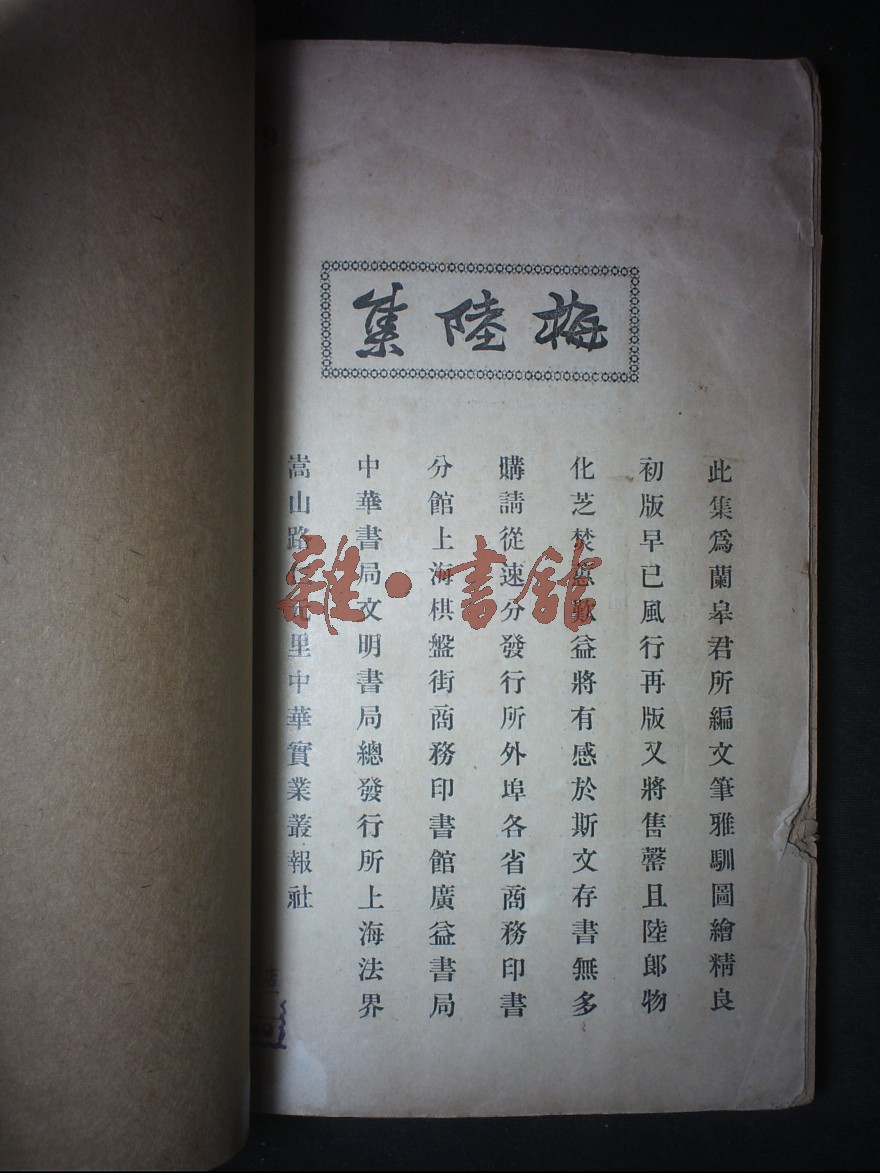 梅陸集
此集爲蘭皋君所編文筆雅馴圖繪精良
初版早已風行再版又將售罄且陸郞物
化芝焚蕙歎益將有感於斯文存書無多
購請從速分發行所外埠各省商務印書
分館上海棋盤街商務印書館廣益書局
中華書局文明書局總發行所上海法界
嵩山路里中華實業叢報社
雜·書館
9